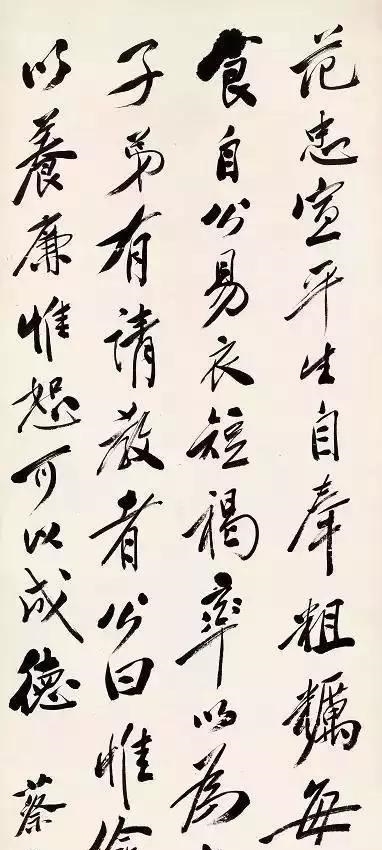 范忠宣平生自奉粗糲每
食自公易衣短褐率以為
子弟有請教者公曰惟儉
以養廉惟恕可以成德 蔡